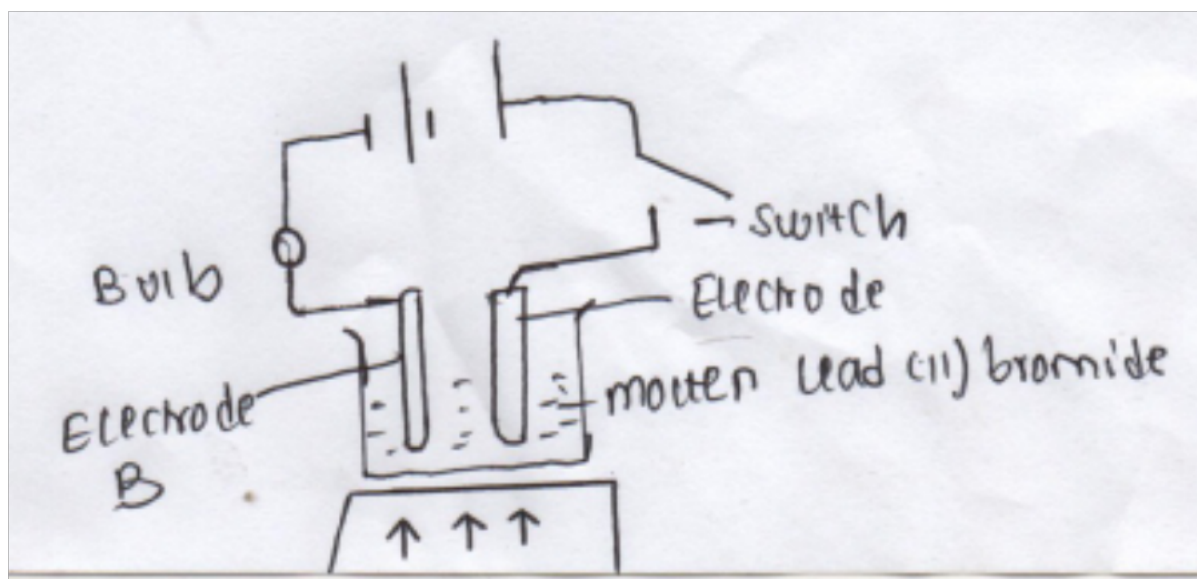 Switch
Bulb
Electrode
molten lead (II) bromide
Electrode
B